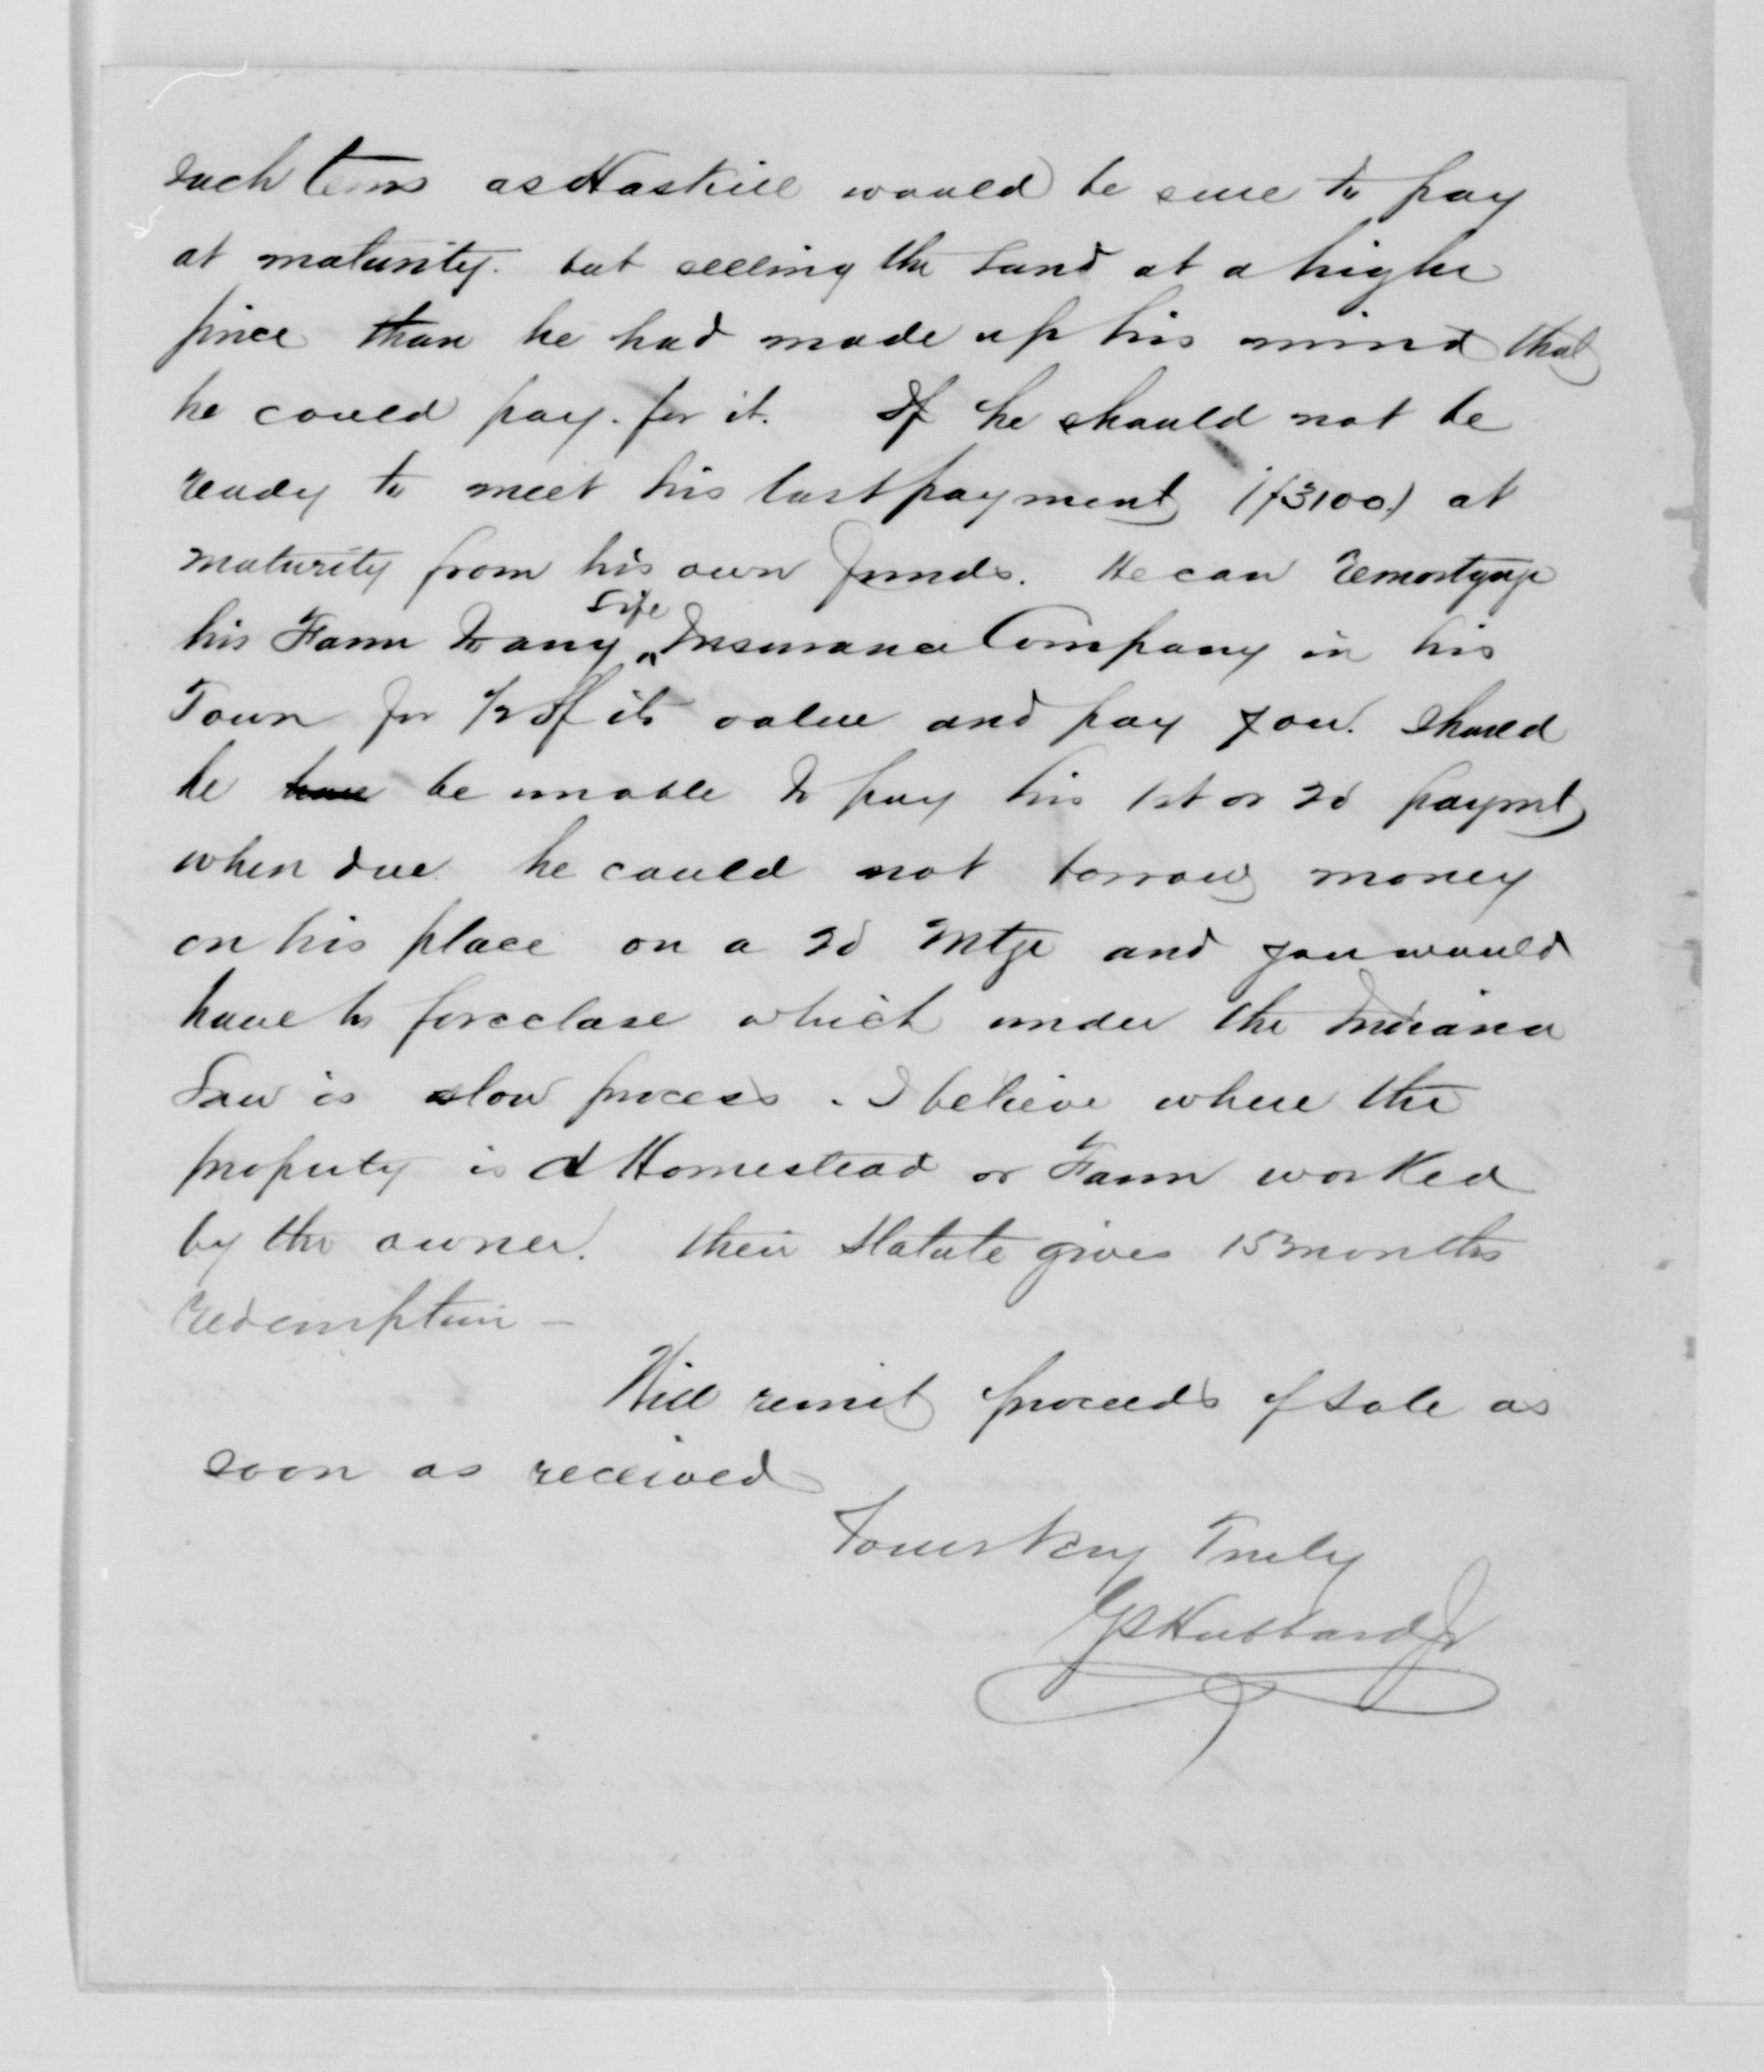 such terms as Haskill would be sure to pay
at maturity. but selling the Land at a higher
price than he had made up his mind that
he could pay. for it. If he should not be
ready to meet his last payment ($3100.) at
maturity from his own funds. He can remortgage
his Farm to any Life Insurance Company in his
Town for 1/2 of its value and pay you. Should
he have be unable to pay his 1st or 2d paymt
when due he could not borrow money
on his place on a 2d Mtge and you would
have to foreclose which under the Indiana
Law is slow process. I believe where the
property is a Homestead or Farm worked
by the owner. their Statute gives 15 months
redemption -
Will remit proceeds of sale as
soon as received
Yours Very Truly
GS Hubbard Jr